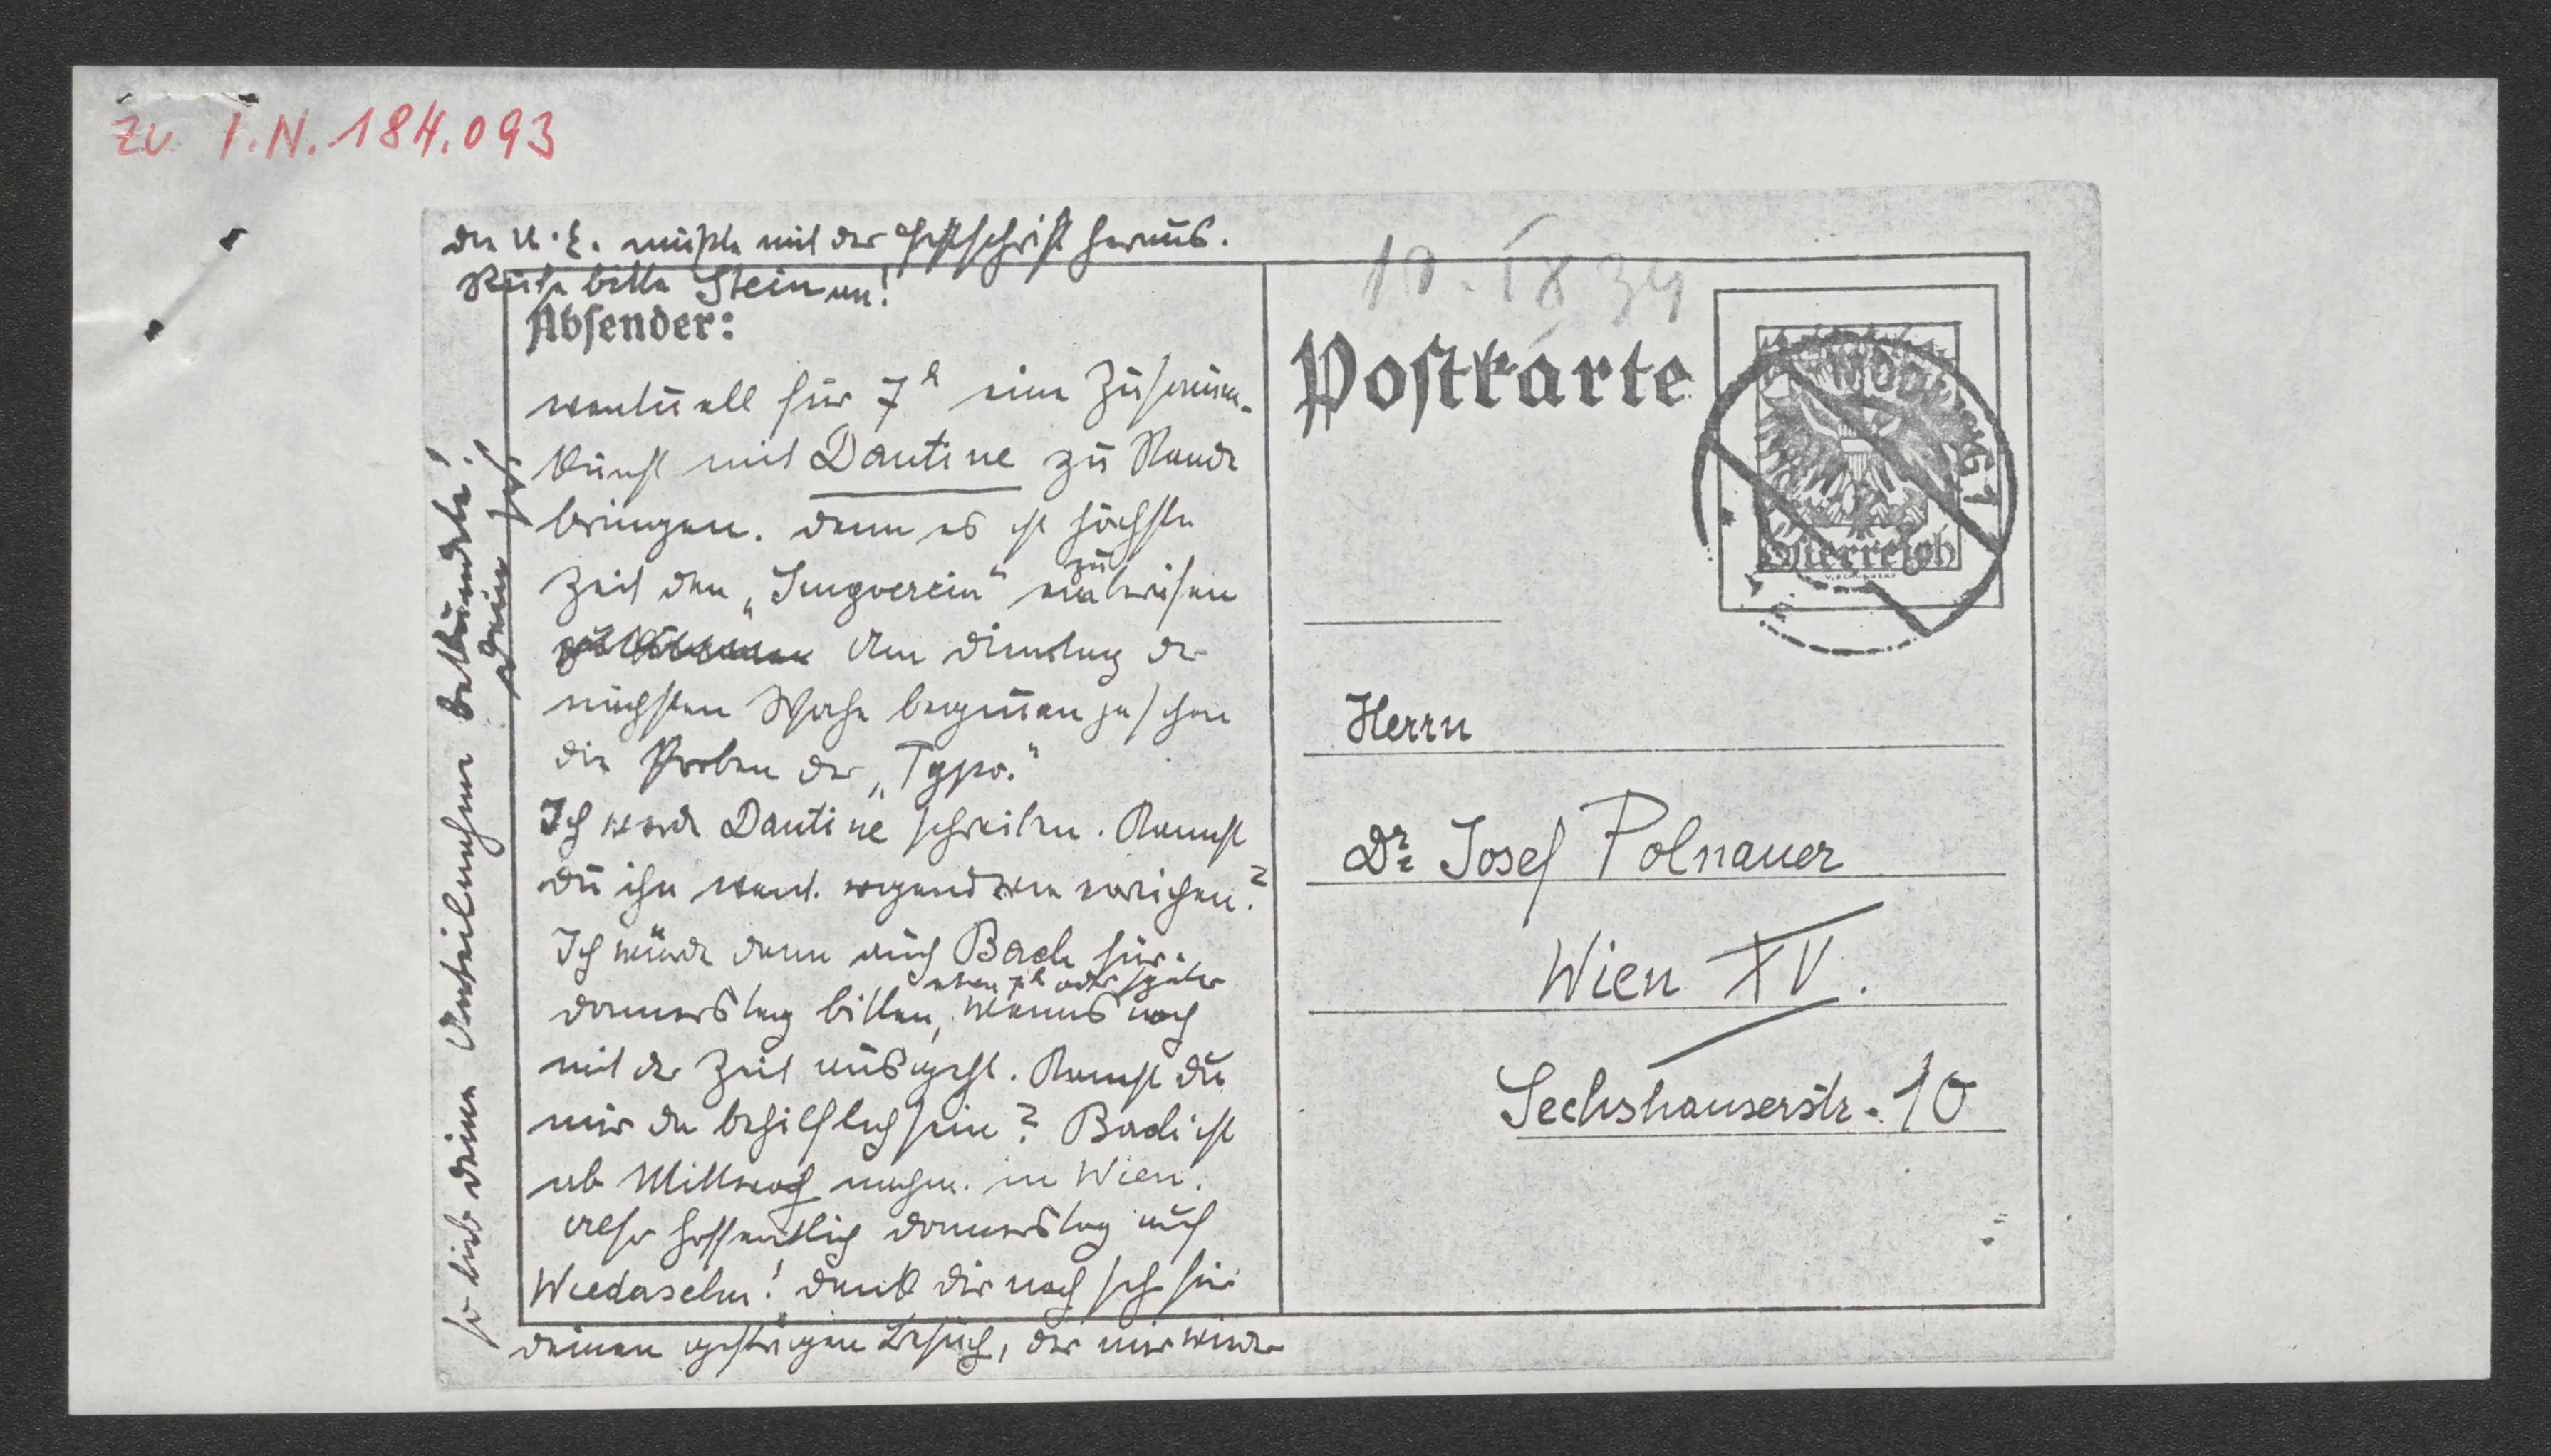 zu I.N. 184.093
die U.E. müßte mit der Festschrift heraus.
Rufe bitte Stein an!
Absender:
eventuell für 7h eine Zusamm-
kunft mit Dantine zu Stande
bringen. denn es ist höchste
Zeit den „Singverein“ zu
Am Dienstag der
nächsten Woche beginnen ja schon
die Proben der „Typo.“
Ich werde Dantine schreiben. Kannst
Du ihn event. irgendwie erreichen?
Ich würde dann auch Bach für
etwa 7h oder später
Donnerstag bitten, wenns noch
mit der Zeit ausgeht. Kannst Du
mir da behilflich sein? Bach ist
ab Mittwoch nachm. in Wien.
Also hoffentlich Donnerstag auf
Wiedersehn! Dank Dir noch sehr für
Deinen gestrigen Besuch, der mir wieder
so lieb Deine Anteilnahme bekundete!
Dein
10. IX 34
Postkarte
MÖDLING 1
Österreich
Herrn
Dr. Josef Polnauer
Wien XV.
Sechshauserstr. 10